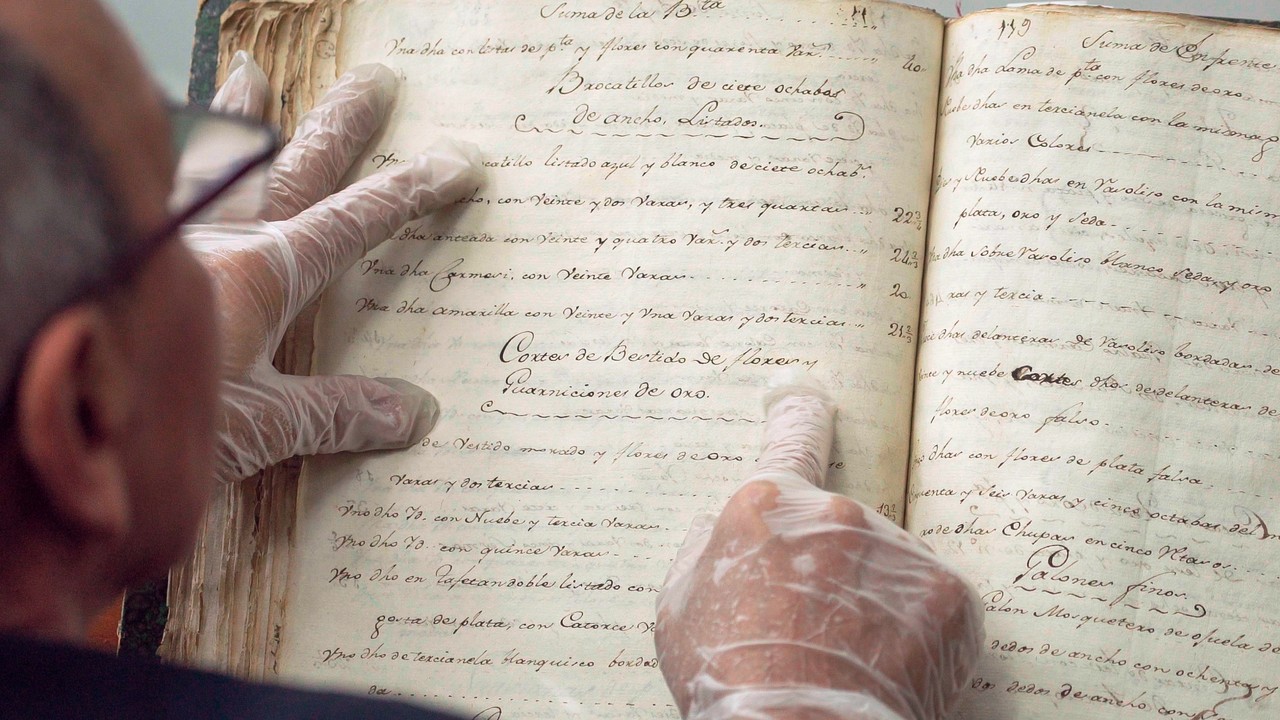 Suma de la B.ta ..... 11..
Vna dha con listas de p.ta y flores con quarenta Var.s ..... 40..
Brocatillos de ciete ochabas
de ancho, Listados.
Vn catillo listado azul y blanco de ciete ochab.s
ho, con Veinte y dos Varas, y tres quartas .. 22 3/4
dha anteada con Veinte y quatro Var.s y dos tercias ... 24 2/3
Vna dha Carmesi, con Veinte Varas ..... 20
Vna dha amarilla con Veinte y Vna Varas y dos tercias .. 21 2/3
Cortes de Bestido de flores y
Guarniciones de oro.
de Vestido morado y flores de Oro
Varas y dos tercias
Vno dho Yd. con Nuebe y tercia Varas
Vno dho Yd. con quince Varas
Vno dho en Tafetan doble listado con
gosta de plata, con Catorce
Vno dho de tercianela blanquisco bordad
da
119
Suma del frente
dha Lama de p.ta con flores de oro
Nuebe dhas en tercianela con la misma
Varios Colores
y Nuebe dhas en Vasoliso con la mism
plata, oro y seda
dha sobre Vasoliso blanco, seda, y oro
ras y tercia
dhas delanteras de Vasoliso bordadas de
te y nuebe Cortes dhos de delanteras de
flores de oro falso
dhas con flores de plata falsa
enta y Seis Varas y cinco octabas del
ro de dhas Chupas en cinco Rtasos
Galones finos
Galon Mosquetero de
dedos de ancho con ochenta y
dos dedos de ancho, con